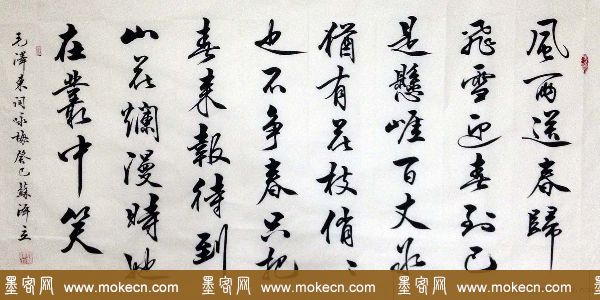 風雨送春歸
飛雪迎春到已
是懸崖百丈冰
猶有花枝俏〻
也不争春只把
春来報待到
山花爛漫時她
在叢中笑
毛澤東词咏梅癸巳蘇澤立
墨客网 www.mokecn.com 墨客网 www.mokecn.com 墨客网 www.mokecn.com